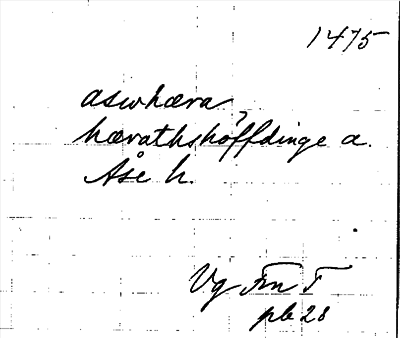 1475
aswhæra
hærathshöffdinge a.
Åse h.
Vg Fm T
pb 28